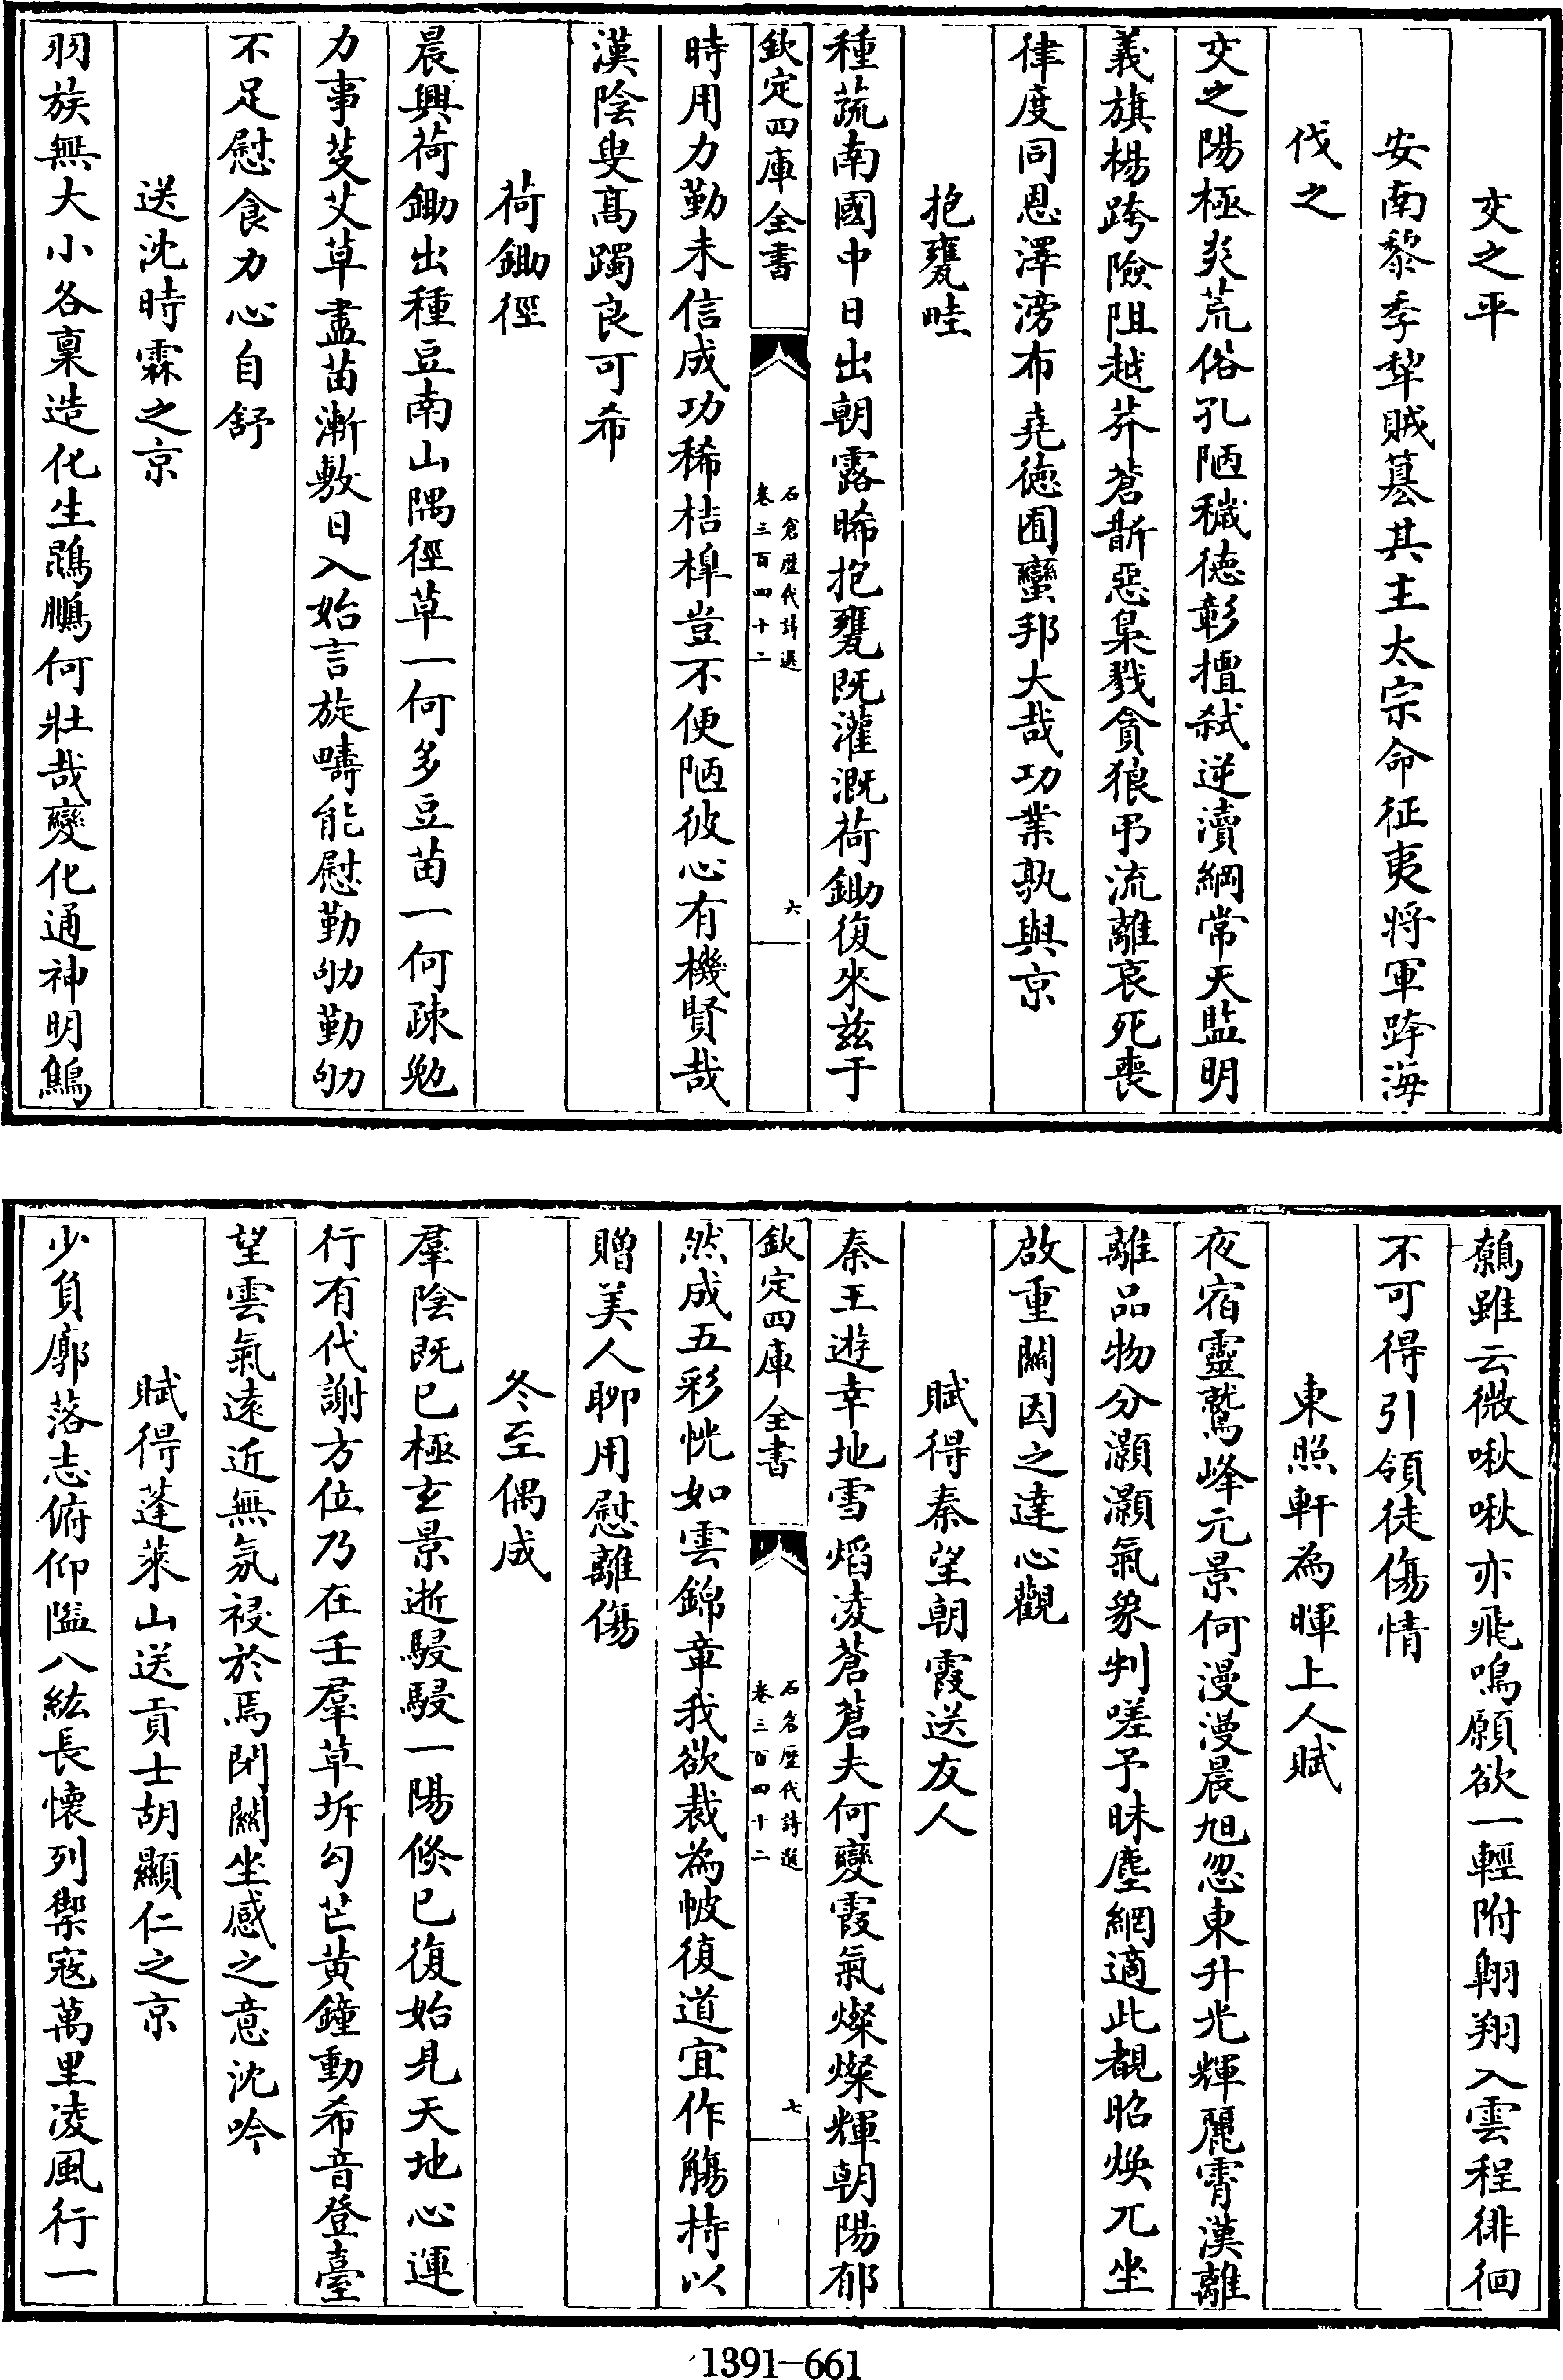 交之平
安南黎季犂賊簒其主太宗命征夷將軍跨海
伐之
交之陽極炎荒俗孔陋穢徳彰擅弑逆瀆綱常天監明
義旗楊跨險阻越莽蒼斮惡梟戮貪狼弔流離哀死喪
律度同恩澤滂布堯徳囿蠻邦大哉功業孰與京
抱甕畦
種蔬南國中日出朝露晞抱甕既灌溉荷鋤復來兹于
欽定四庫全書
石倉歴代詩選
卷三百四十二
六
時用力勤未信成功稀桔槹豈不便陋彼心有機賢哉
漢陰叟髙躅良可希
荷鋤徑
晨興荷鋤出種豆南山隅徑草一何多豆苗一何疎勉
力事芟艾草盡苗漸敷日入始言旋疇能慰勤劬勤劬
不足慰食力心自舒
送沈時霖之京
羽族無大小各稟造化生鵾鵬何壯哉變化通神明鷦
鷯雖云微啾啾亦飛鳴願欲一輕附翺翔入雲程徘徊
不可得引領徒傷情
東照軒為暉上人賦
夜宿靈鷲峰元景何漫漫晨旭忽東升光輝麗霄漢離
離品物分灝灝氣象判嗟予昧塵網適此覩昭煥兀坐
啟重關因之達心觀
賦得秦望朝霞送友人
秦王遊幸地雪熖凌蒼蒼夫何變霞氣燦燦輝朝陽郁
欽定四庫全書
石倉歴代詩選
卷三百四十二
七
然成五彩恍如雲錦章我欲裁為帔復道宜作觴持以
贈美人聊用慰離傷
冬至偶成
羣陰既已極玄景逝駸駸一陽倐已復始見天地心運
行有代謝方位乃在壬羣草坼勾芒黄鐘動希音登臺
望雲氣遠近無氛祲於焉閉關坐感之意沈吟
賦得蓬萊山送貢士胡顯仁之京
少負廓落志俯仰隘八紘長懷列禦寇萬里凌風行一
1391-661